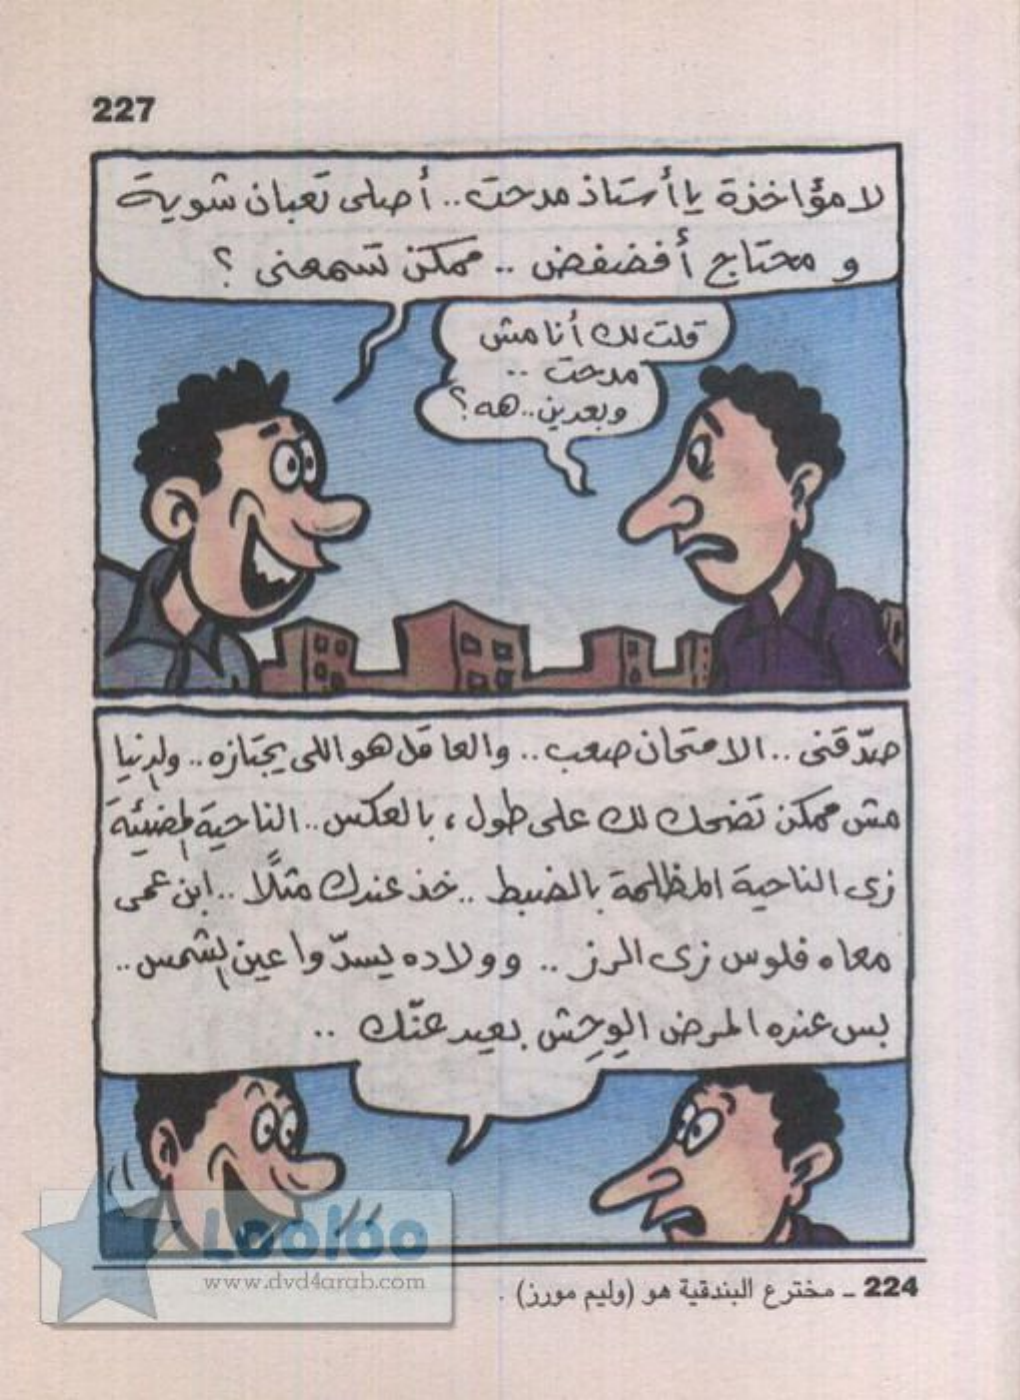 227
لا مؤاخذة يا أستاذ مدحت.. أصلى تعبان شوية
و محتاج أفضفض .. ممكن تسمعنى ؟
قلت لك أنا مش
مدحت ..
وبعدين.. هه ؟
صدّقنى .. الامتحان صعب .. والعاقل هو اللى يجتازه .. والدنيا
مش ممكن تضحك لك على طول ، بالعكس .. الناحية المضيئة
زى الناحية المظلمة بالضبط .. خذ عندك مثلًا .. ابن عمى
معاه فلوس زى الرز .. وولاده يسدّوا عين الشمس ..
بس عنده المرض الوِحِش بعيد عنّك ..
Looloo
www.dvd4arab.com
224 ـ مخترع البندقية هو (وليم مورز) .